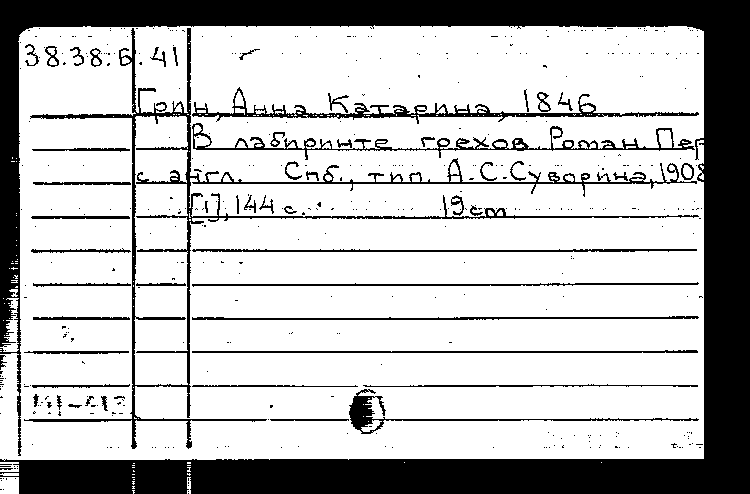 38.38:6.41
Грин, Анна Катарина, 1846
В лабиринте грехов. Роман. Пер
с англ. Спб., тип. А.С.Суворина, 1908
[1], 144 с. 19 cm